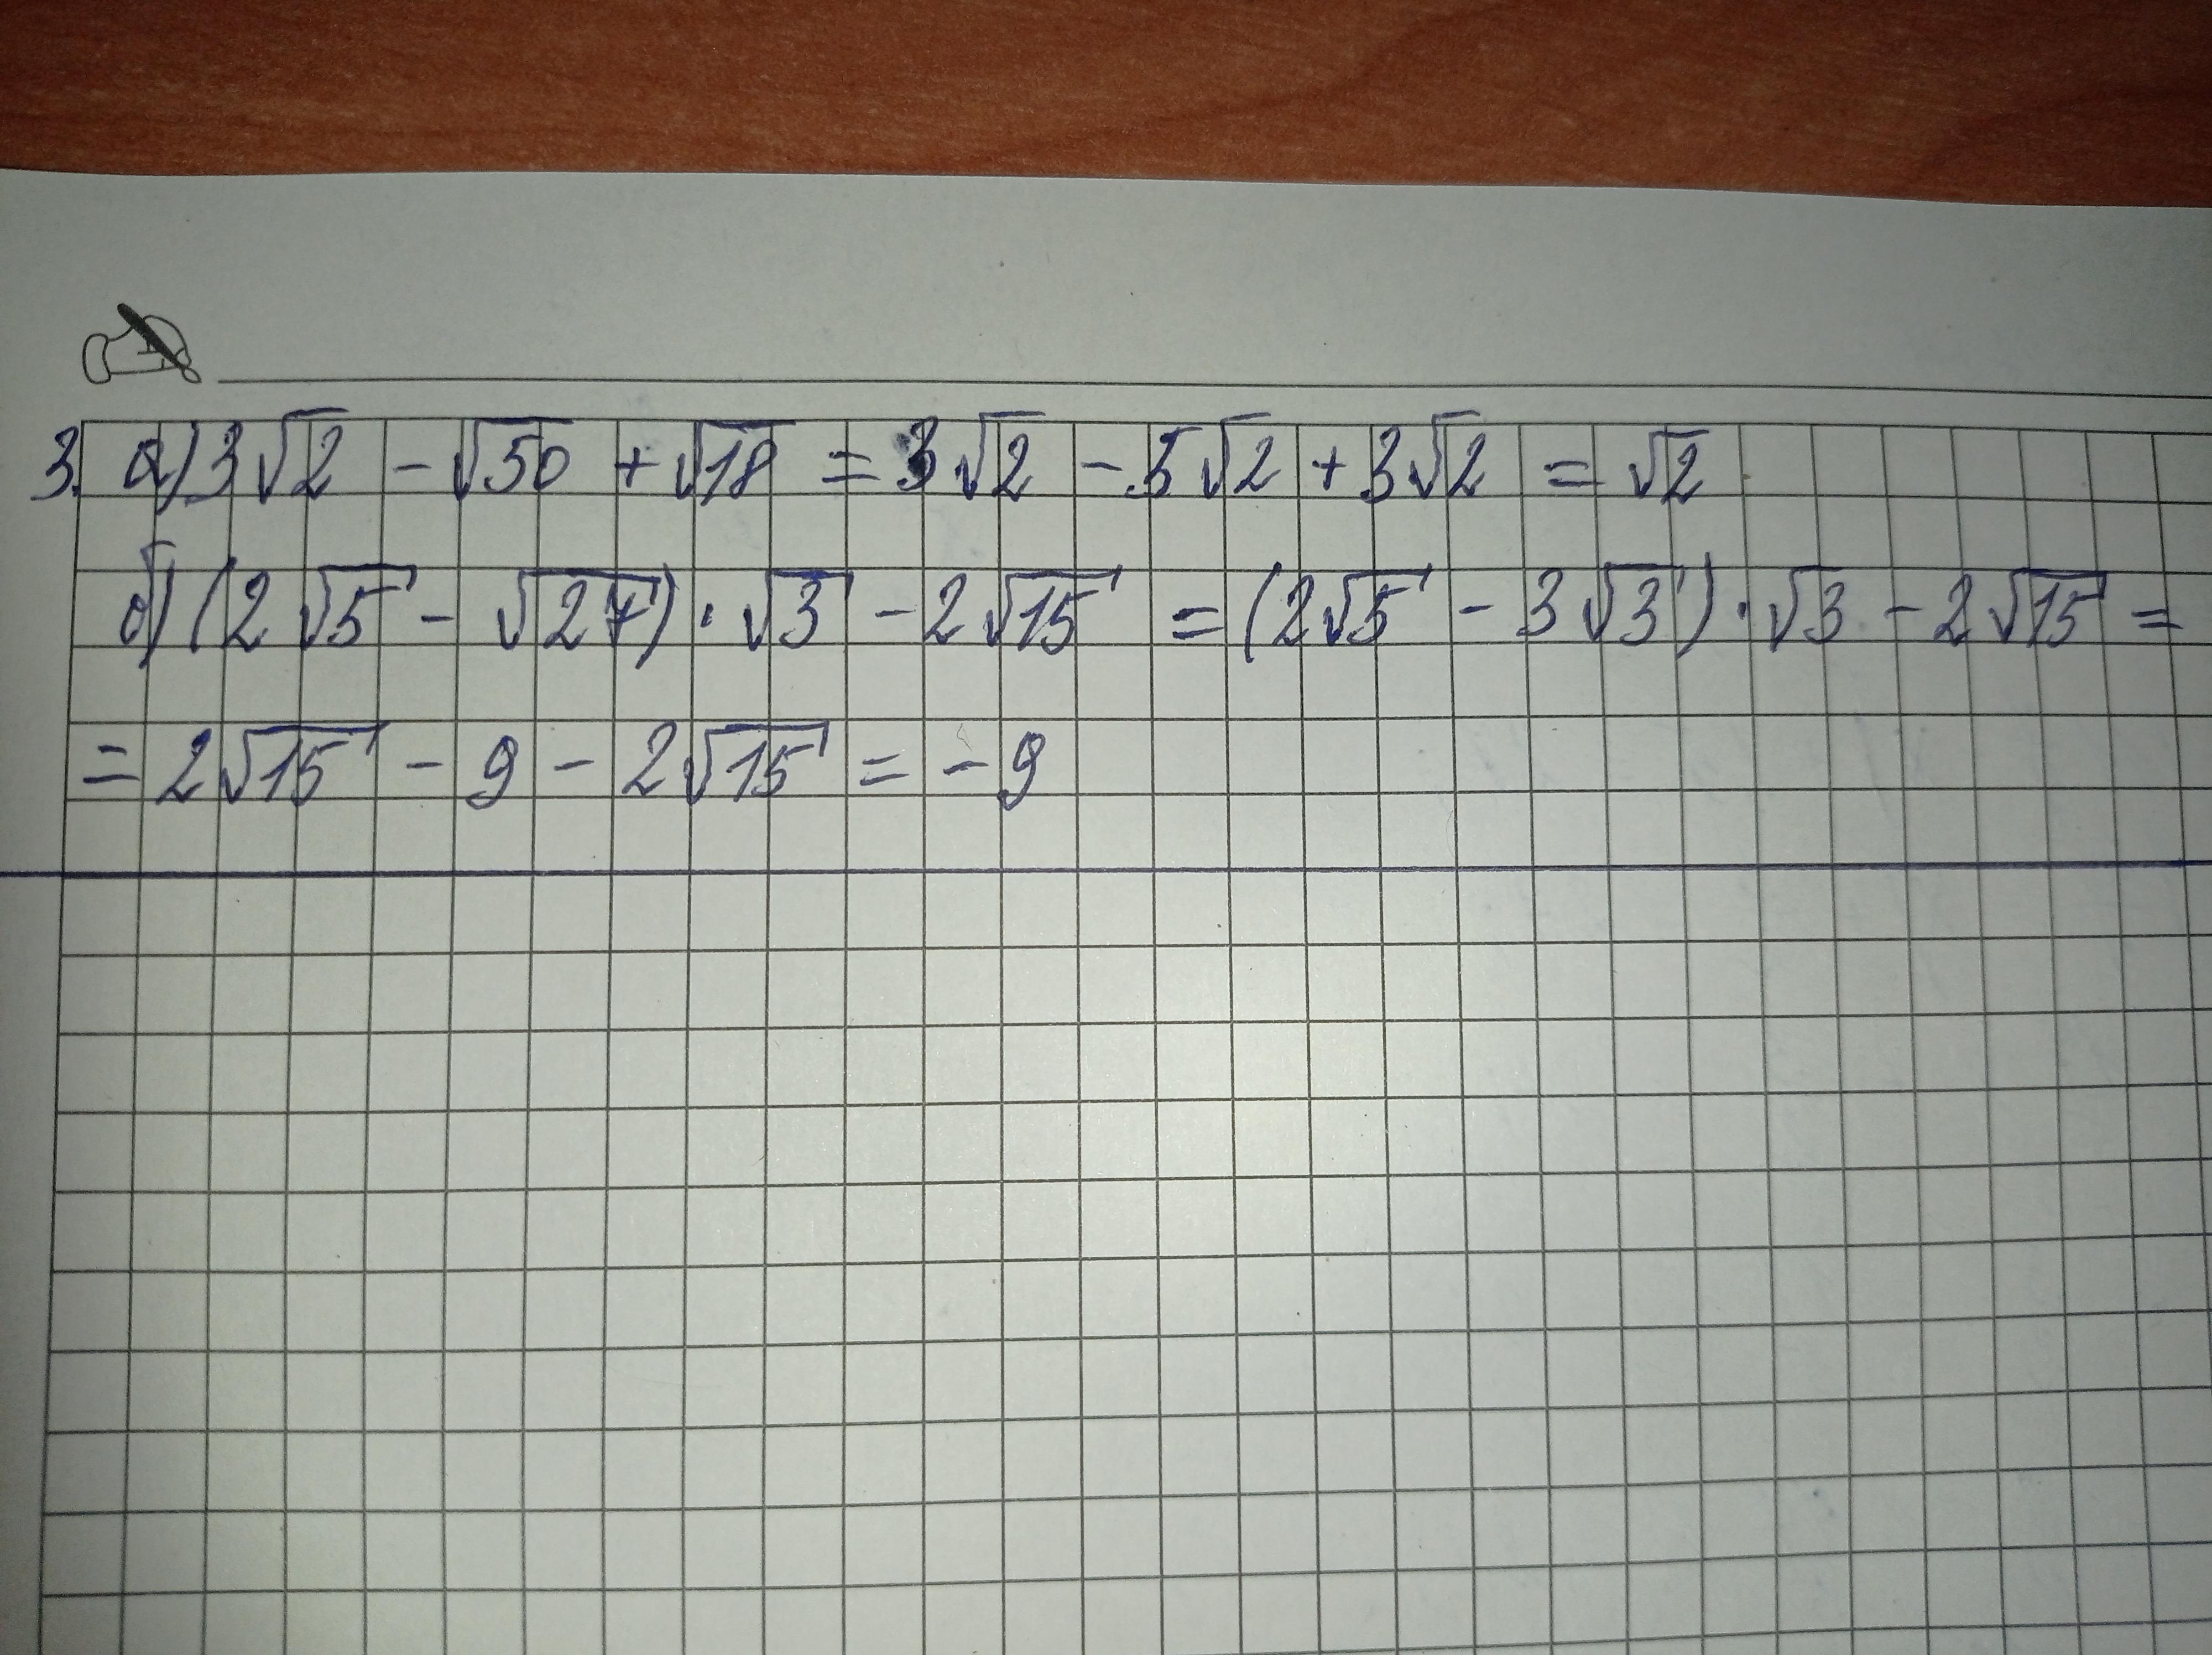 3. а) 3√2 - √50 + √18 = 3√2 - 5√2 + 3√2 = √2
б) (2√5 - √27) · √3 - 2√15 = (2√5 - 3√3) · √3 - 2√15 =
= 2√15 - 9 - 2√15 = -9